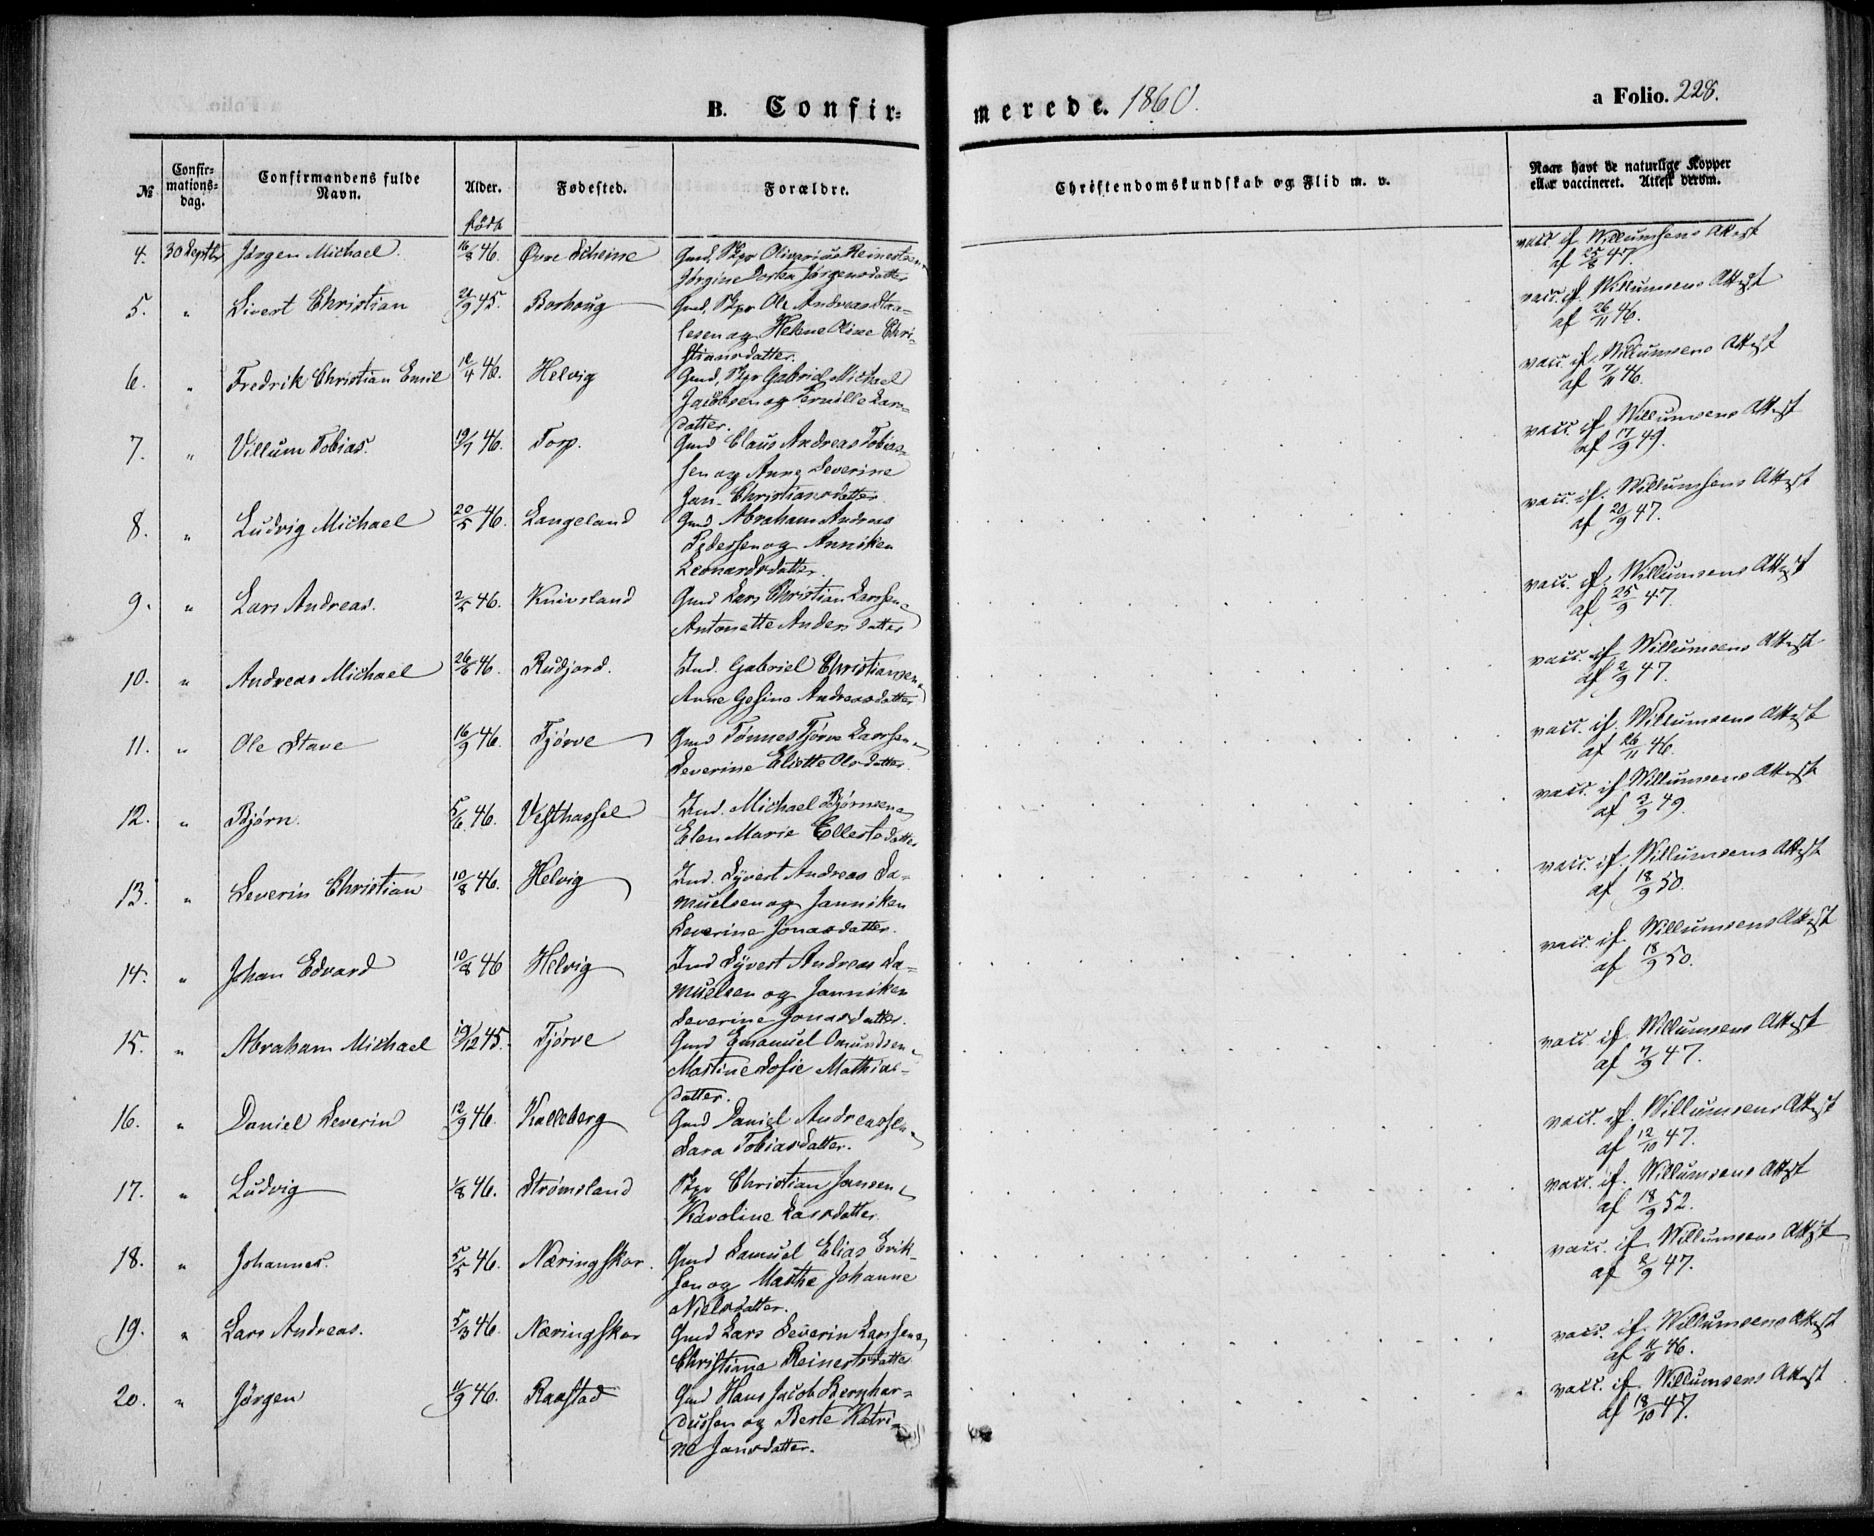 B. Confir=
merede. 1860.
a Folio. 228.
№
Confir=
mations=
dag.
Confirmandens fulde
Navn.
Alder.
Fødested.
Forældre.
Christendomskundskab og Flid m. v.
Naar havt de naturlige Kopper
eller vaccineret. Attest derom.
født
4. 30 Septbr Jørgen Michael. 16/8 46. Øvre Scheine Gmd, Skpr Olivarius Reinertsen
Jørgine Dortea Jørgensdatter
vacc. if Willumsens Attest
af 25/8 47.
5. " Sivert Christian 21/9 45. Borhoug Gmd, Skpr Ole Andreas Staa-
lesen og Helene Oline Chri-
stiansdatter.
vacc. if. Willumsens Attest
af 26/11 46.
6. " Fredrik Christian Emil 12/4 46. Helvig Gmd, Skpr Gabriel Michael
Jacobsen og Pernille Lars-
datter.
vacc. if. Willumsens Attest
af 7/11 46.
7. " Villum Tobias. 19/7 46. Torp. Gmd Claus Andreas Tobias-
sen og Anne Severine
Jan- Christiansdatter
vacc. if Willumsens Attest
af 17/9 49.
8. " Ludvig Michael 20/5 46. Langeland Gmd Abraham Andreas
Pedersen og Anniken
Leonardsdatter
vacc. if. Willumsens Attest
af 20/9 47.
9. " Lars Andreas. 2/5 46. Knivsland Gmd Lars Christian Larssen
Antonette Andersdatter
vacc. if. Willumsens Attest
af 25/9 47.
10. " Andreas Michael 26/6 46. Rudjord. Ind. Gabriel Christiansen
Anne Gesine Andreasdatter
vacc. if Willumsens Attest
af 2/9 47.
11. " Ole Stave 16/9 46. Tjørve Gmd Tønnes Tjørve Larssen
Severine Elisette Olsdatter.
vacc. if. Willumsens Attest
af 26/11 46.
12. " Bjørn. 5/6 46. Vesthassel Ind. Michael Bjørnsen
Elen Marie Ellertsdatter
vacc. if Willumsens Attest
af 2/9 49.
13. " Severin Christian 10/8 46. Helvig Ind. Syvert Andreas Sa-
muelsen og Janniken
Severine Jonasdatter.
vacc. if. Willumsens Attest
af 18/9 50.
14. " Johan Edvard 10/8 46 Helvig Ind Syvert Andreas Sa-
muelsen og Janniken
Severine Jonasdatter.
vacc. if. Willumsens Attest
af 18/9 50.
15. " Abraham Michael 19/12 45. Tjørve Gmd Emanuel Omundsen
Martine Sofie Mathias-
datter.
vacc if. Willumsens Attest
af 7/9 47.
16. " Daniel Severin 12/9 46. Kalleberg Gmd Daniel Andreassen
Sara Tobiasdatter.
vacc. if. Willumsens Attest
af 12/10 47.
17. " Ludvig 1/8 46. Strømsland Skpr Christian Jansen
Karoline Larsdatter.
vacc. if. Willumsens Attest
af 18/9 52.
18. " Johannes. 5/5 46. Næringskar. Gmd Samuel Elias Erik-
sen og Marthe Johanne
Nielsdatter.
vacc. if Willumsens Attest
af 2/9 47.
19. " Lars Andreas. 5/3 46. Næringskar Gmd Lars Severin Larssen
Christiane Reinertsdatter
vacc. if. Willumsens Attest
af 46.
20. " Jørgen 11/9 46. Raastad Gmd Hans Jacob Bernhar-
dussen og Berte Katri-
ne Jansdatter.
vacc. if. Willumsens Attest
af 18/10 47.